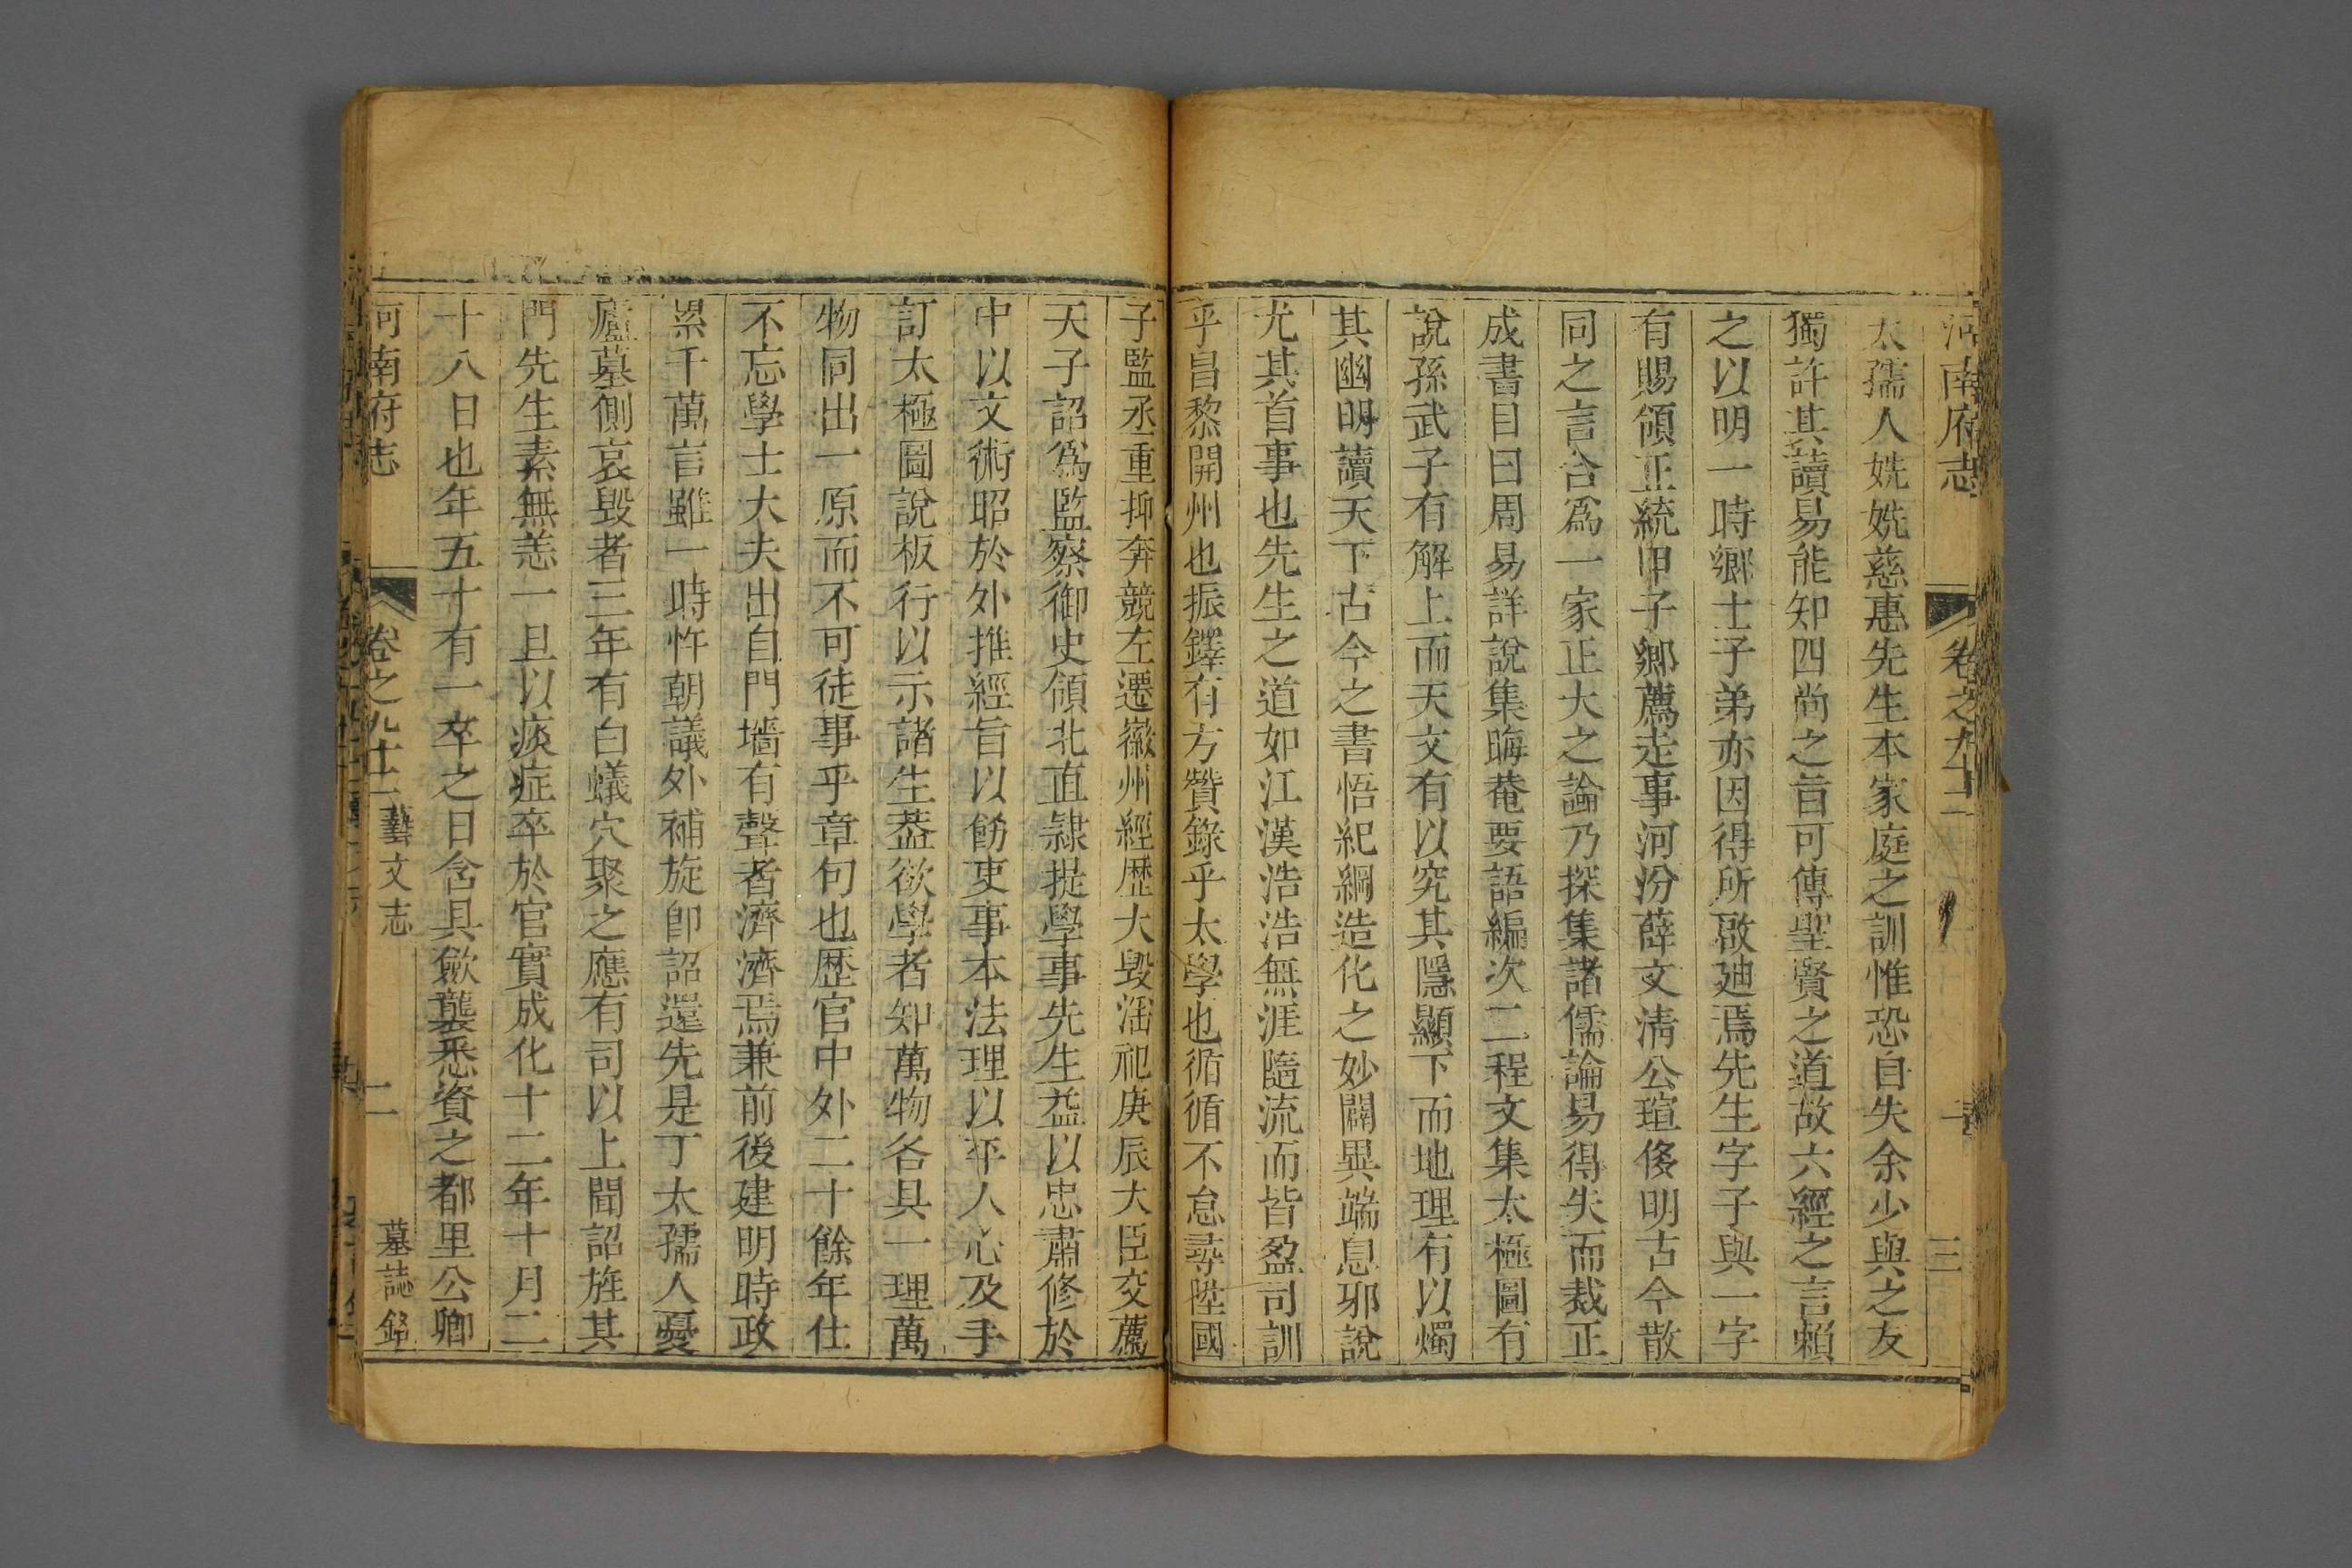 河南府志 卷之九十二 三
太孺人姺姺慈惠先生本家庭之訓惟恐自失余少與之友
獨許其讀易能知四尚之旨可傳聖賢之道故六經之言賴
之以明一時鄉士子弟亦因得所啟廸焉先生字子與一字
有賜領正統甲子鄉薦走事河汾薛文清公瑄俊明古今散
同之言合為一家正大之論乃探集諸儒論易得失而裁正
成書目曰周易詳說集晦菴要語編次二程文集太極圖有
說孫武子有解上而天文有以究其隱顯下而地理有以燭
其幽明讀天下古今之書悟紀綱造化之妙闢異端息邪說
尤其首事也先生之道如江漢浩浩無涯隨流而皆盈司訓
乎昌黎開州也振鐸有方贊錄乎太學也循循不怠尋陞國
子監丞重抑奔競左遷徽州經歷大毀滛祀庚辰大臣交薦
天子詔為監察御史領北直隸提學事先生益以忠肅修於
中以文術昭於外推經旨以飭吏事本法理以平人心及手
訂太極圖說板行以示諸生葢欲學者知萬物各具一理萬
物同出一原而不可徒事乎章句也歷官中外二十餘年仕
不忘學士大夫出自門墻有聲者濟濟焉兼前後建明時政
累千萬言雖一時忤朝議外補旋卽詔還先是丁太孺人憂
廬墓側哀毀者三年有白蟻穴聚之應有司以上聞詔旌其
門先生素無恙一旦以痰症卒於官實成化十二年十月二
十八日也年五十有一卒之日含具斂襲悉資之都里公卿
河南府志 卷之九十二 藝文志 二 墓誌銘